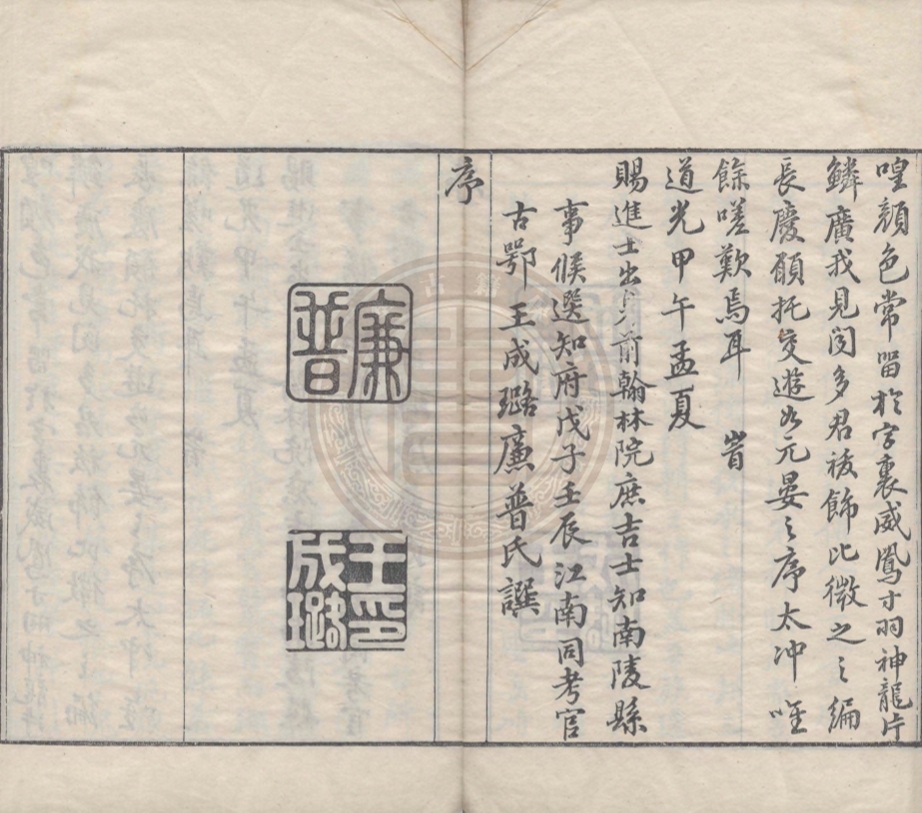 喤顏色常留於字裏威鳳寸羽神龍片
鱗廣我見聞多君祓飾比微之之編
長慶願托交遊如元晏之序太冲唯
餘嗟歎焉耳　旹
道光甲午孟夏
賜進士出身前翰林院庶吉士知南陵縣
事候選知府戊子壬辰江南同考官
古鄂王成璐廉普氏譔
序
廉普
王印成璐